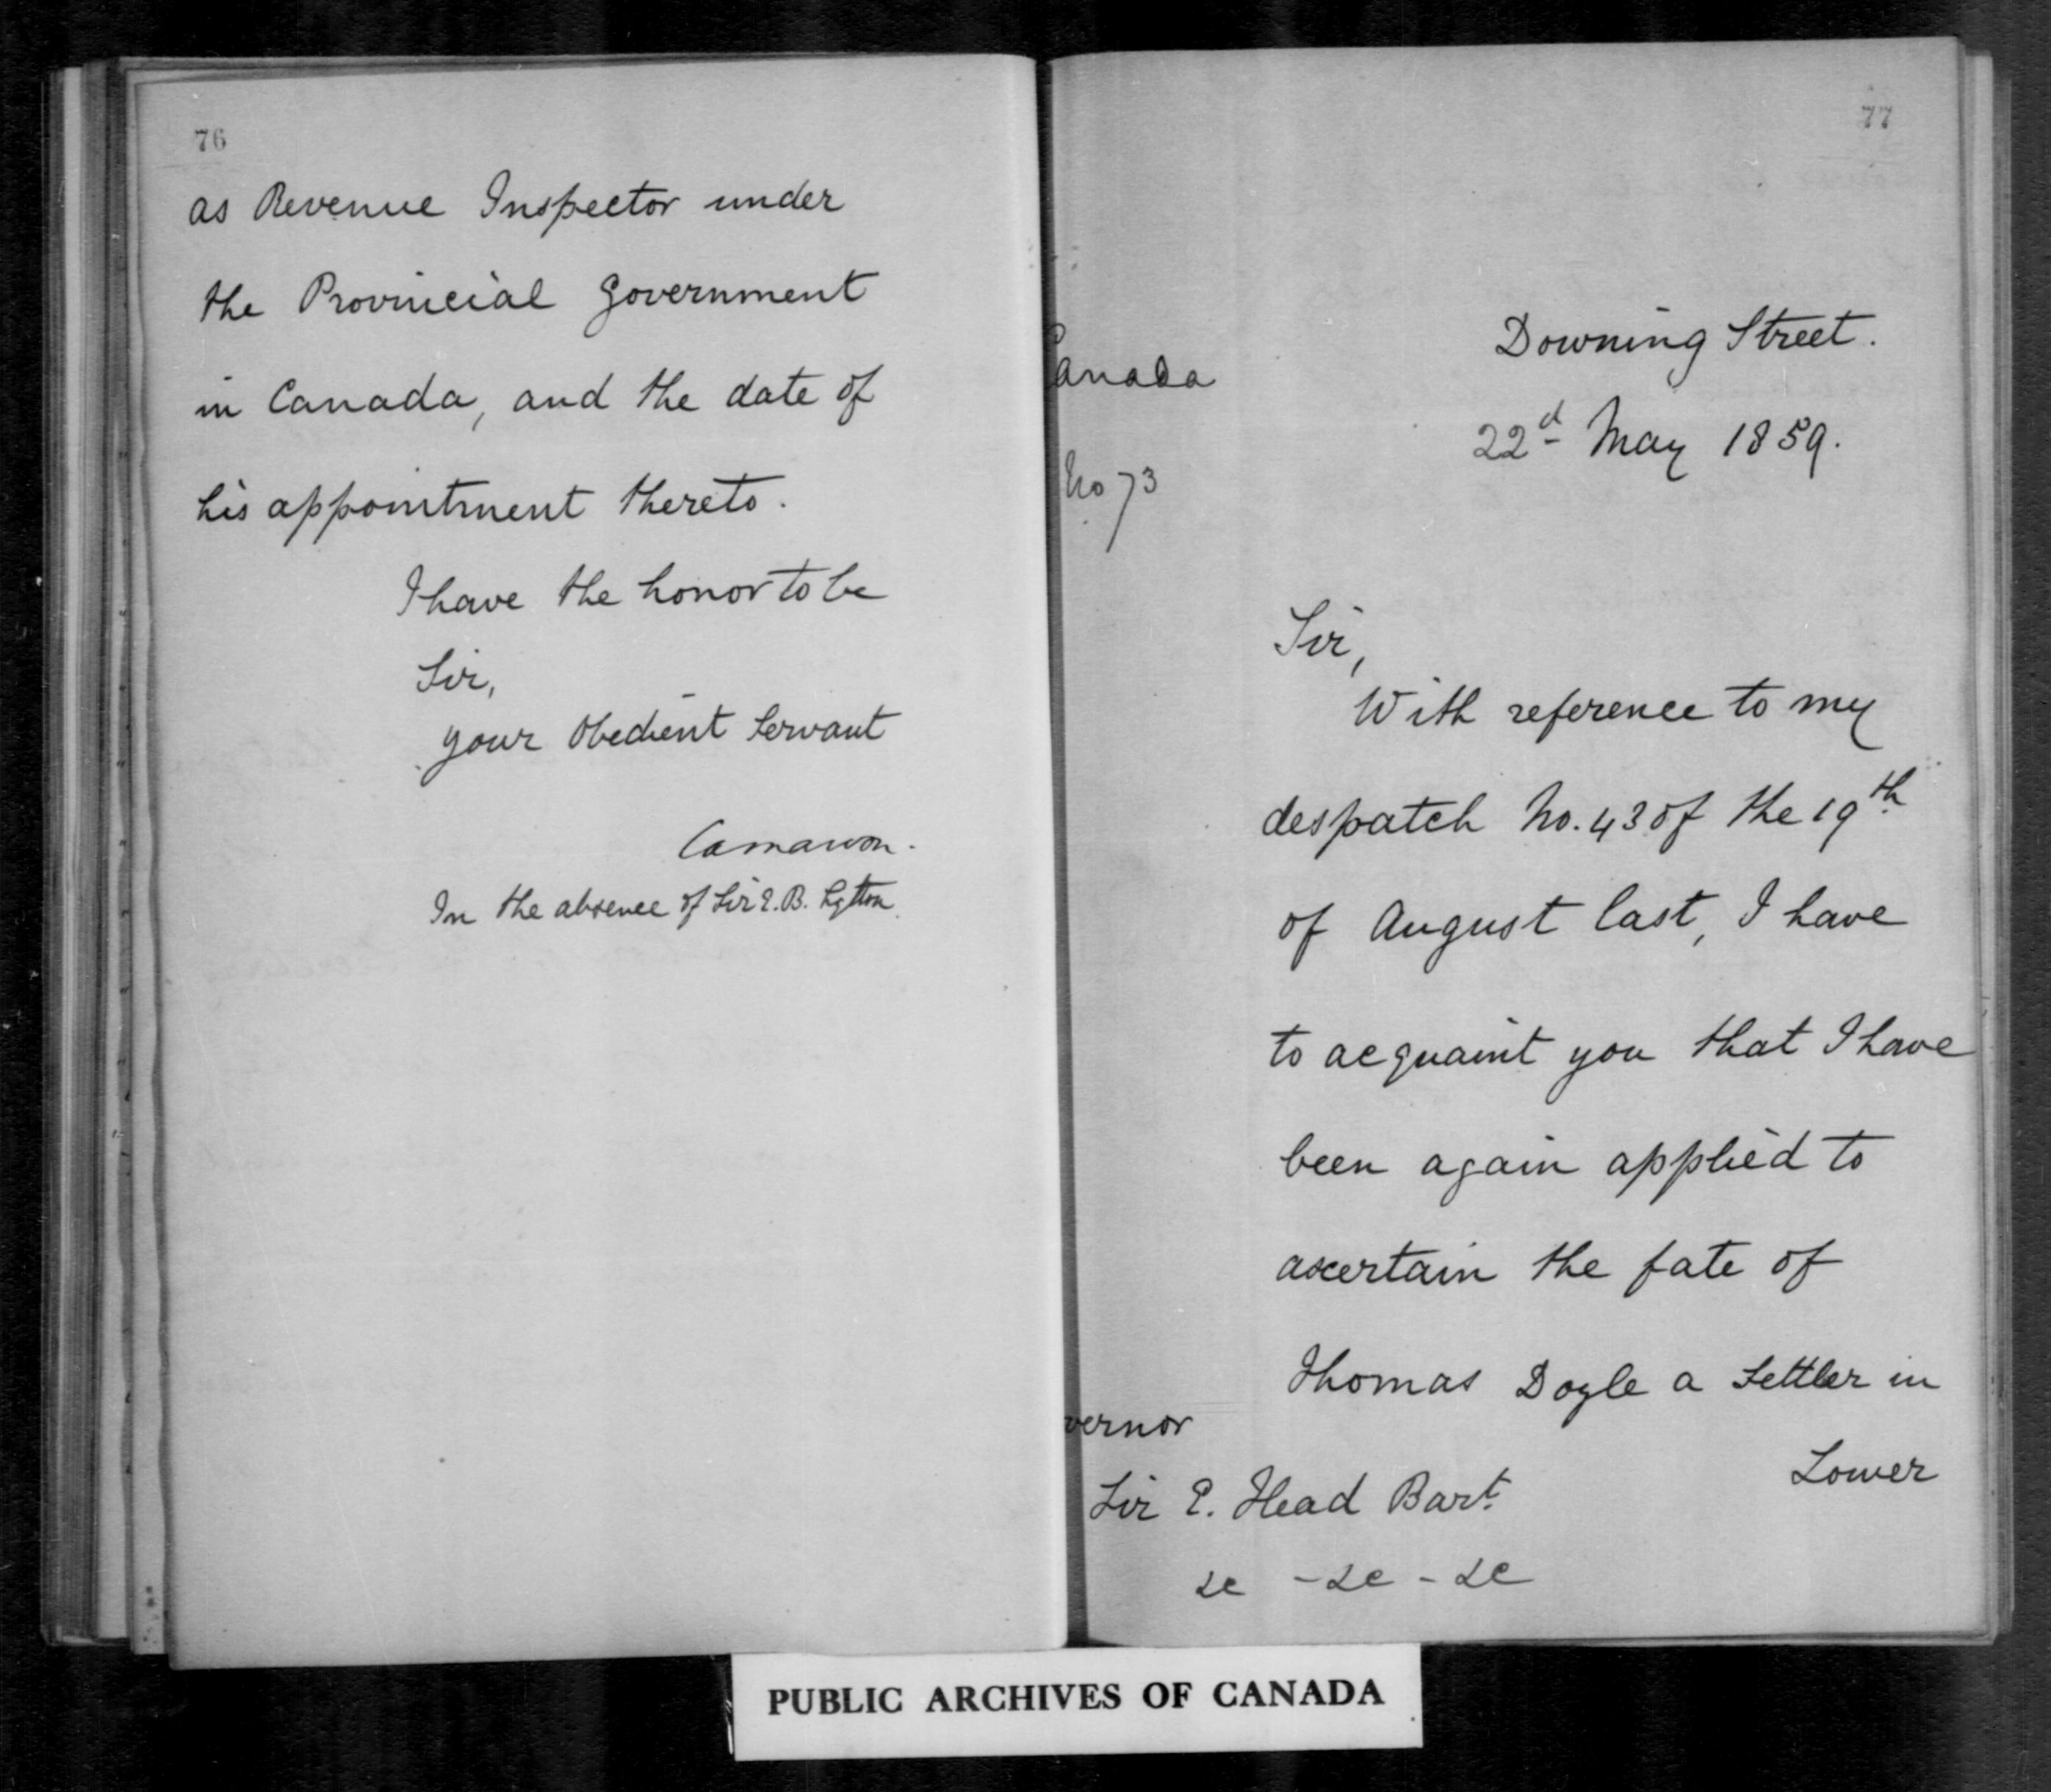 76
as Revenue Inspector under
the Provincial Government
in Canada, and the date of
his appointment thereto.
I have the honor to be
Sir,
your Obedient Servant
Carnarvon.
In the absence of Sir E. B. Lytton
77
Canada
No 73
Downing Street.
22d May 1859.
Sir,
With reference to my
despatch No. 43 of the 19th
of August last, I have
to acquaint you that I have
been again applied to
ascertain the fate of
Thomas Doyle a Settler in
Lower
vernor
Sir E. Head Bart.
&c - &c - &c
PUBLIC ARCHIVES OF CANADA